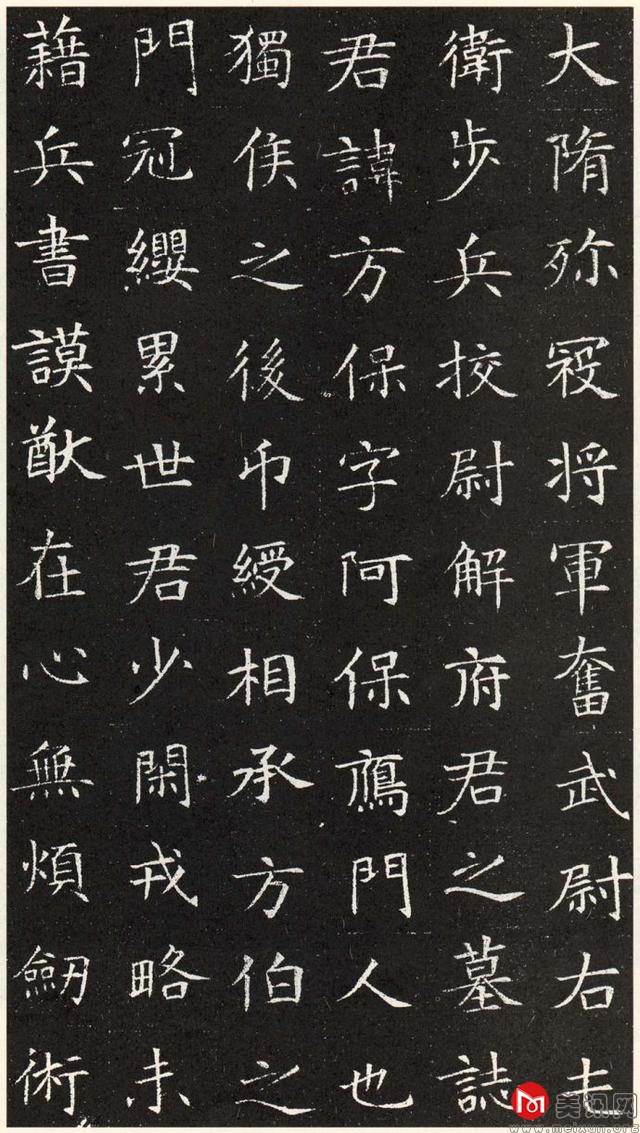 大隋殄寇将軍奮武尉右
衛步兵挍尉解府君之墓誌
君諱方保字阿保鴈門人也
獨侯之後巾綬相承方伯之
門冠纓累世君少閑戎略未
藉兵書謨猷在心無煩劒術
美讯网
www.meixun.org